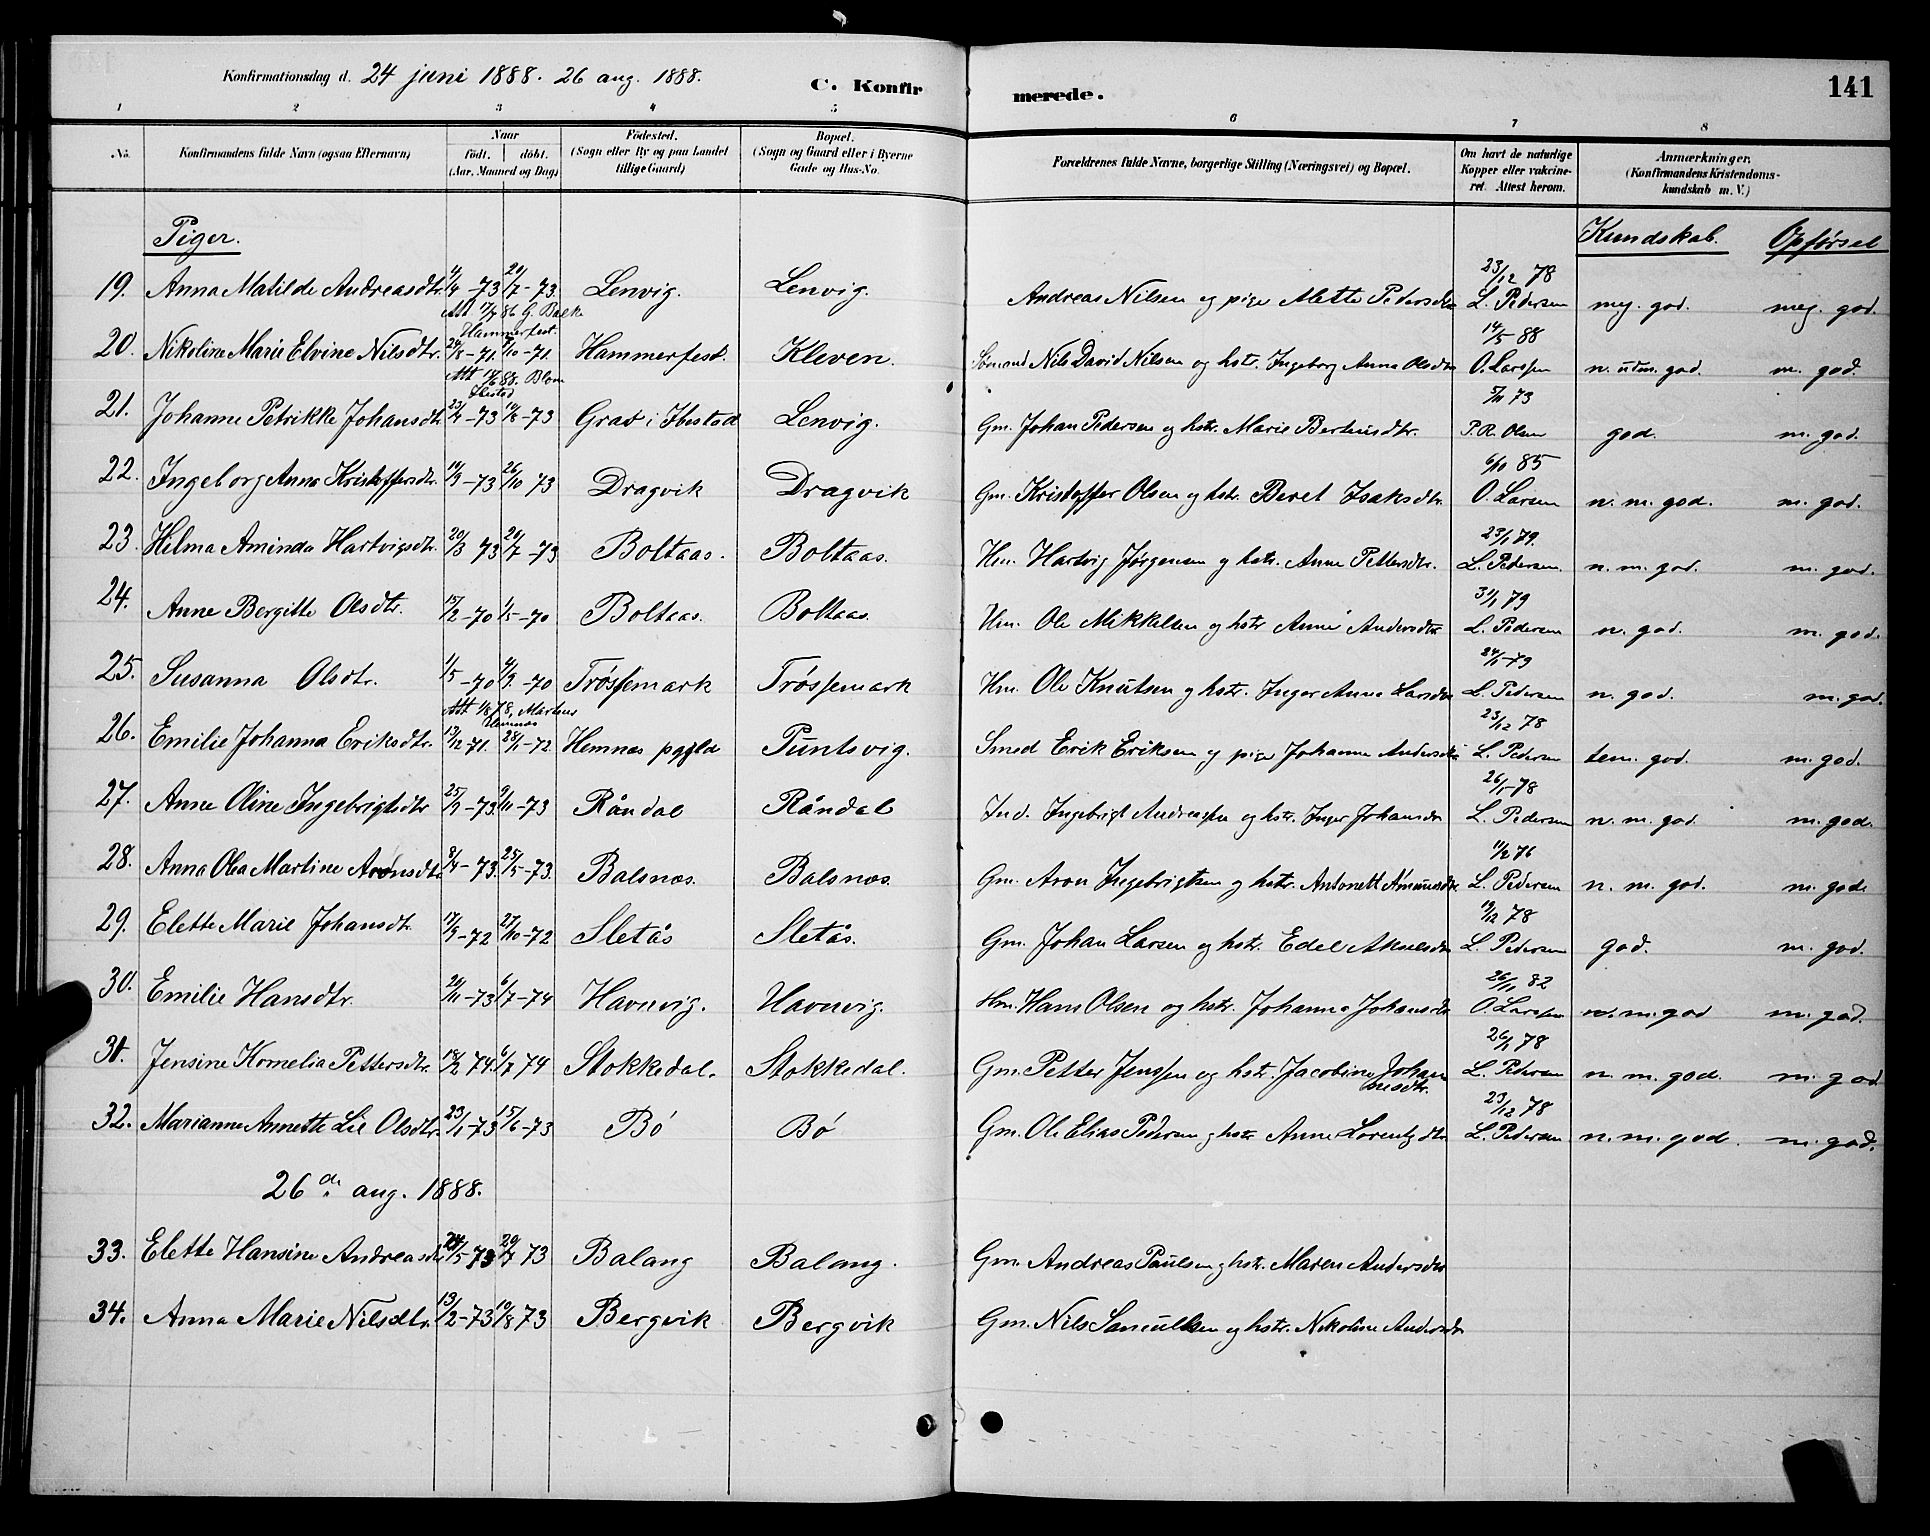 Konfirmationsdag d. 24 juni 1888. 26 aug. 1888. C. Konfirmerede. 141
1 2 3 4 5 6 7 8
No. Konfirmandens fulde Navn (ogsaa Efternavn) Naar födt. döbt. (Aar, Maaned og Dag) Födested. (Sogn eller By og paa Landet tillige Gaard) Bopæl. (Sogn og Gaard eller i Byerne Gade og Hus-No. Forældrenes fulde Navne, borgerlige Stilling (Næringsvei) og Bopæl. Om havt de naturlige Kopper eller vakcineret. Attest herom. Anmærkninger. (Konfirmandens Kristendomskundskab m. V.)
Piger. Kundskab. Opførsel
19. Anna Matilde Andreasdtr. 4/4 -73 20/7 -73. Lenvig. Lenvig. Andreas Nilsen og pige Mette Pedersdtr 23/12 78 L. Pedersen meg. god. meg. god.
Att 17/7 86 G. Balke Hammerfest.
20. Nikoline Marie Elvine Nilsdtr. 24/8 -71. /10 -71. Hammerfest. Kleven. Sømand Nils David Nilsen og hstr. Ingeborg Anna Olsdtr 14/5 88 O. Larssen n. udm. god. m. god.
Att /6 88. Blom Ibestad
21. Johanne Petrikke Johansdtr. 23/4 -73 10/8 -73 Grav i Ibestad Lenvig. Gm. Johan Pedersen og hstr. Marie Berthusdtr. 5/11 73 P. R. Olsen god. m. god.
22. Ingeborg Anna Kristoffersdtr. 19/9 -73 26/10 73 Dragvik Dragvik Gm. Kristoffer Olsen og hstr. Beret Isaksdtr. 6/10 85 O. Larsen n. m. god. m. god.
23. Hilma Aminda Hartvigsdtr. 20/3 73 20/7 -73 Boltaas. Boltaas. Hm. Hartvig Jørgensen og hstr. Anne Pettersdtr. 23/1 79. L. Pedersen. n. m. god. m. god.
24. Anne Bergitte Olsdtr. 15/2 -70 1/5 -70 Boltaas. Boltaas. Hm. Ole Mikkelsen og hstr Anne Andersdtr 31/1 79 L. Pedersen n. god. m. god.
25. Susanna Olsdtr. 1/5 -70 4/9. -70 Trøssemark Trøssemark Hm. Ole Knutsen og hstr. Inger Anna Larsdtr 24/1 -79 L. Pedersen n. god. m. god.
Att 1/8 78, Martens Hemnæs
26. Emilie Johanna Eriksdtr. 13/12 71. 28/1 -72. Hemnæs pgjld Puntsvig. Smed Erik Eriksen og pige Johanne Andersdtr 23/12 78 L. Pedersen tem. god. m. god.
27. Anne Oline Ingebrigtsdtr 25/9 -73. 9/11 -73 Råndal Råndal Ind. Ingebrigt Andreassen og hstr. Inger Johansdtr 26/1 -78 L. Pedersen n. m. god m. god.
28. Anna Olea Martine Aronsdtr 8/4 -73. 25/5 -73. Balsnæs. Balsnæs. Gm. Aron Ingebrigtsen og hstr. Antonett Amundsdtr 11/2 76 L. Pedersen n. m. god. m. god.
29. Elette Marie Johansdtr. 17/9 -72 27/10 -72 Sletås Sletås. Gm. Johan Larsen og hstr. Edel Akselsdtr 19/12 78 L. Pedersen god. m. god.
30. Emilie Hansdtr. 20/11 -73 6/7 -74 Havnvig. Havnvig. Hm. Hans Olsen og hstr. Johanna Johansdtr 26/11 82 O. Larssen n. m. god m. god.
31. Jensine Kornelia Pettersdtr. 18/2 74. 6/7 74 Stokkedal. Stokkedal. Gm. Petter Jenssen og hstr. Jacobine Johannesdtr. 26/1 78 L. Pedersen n. m. god. m. god
32. Marianne Annette Lie Olsdtr. 23/1 -73 15/6 -73 Bø Bø Gm. Ole Elias Pedersen og hstr Anne Lorentzdtr 23/12 78 L. Pedersen n. m. god. m. god.
26de aug. 1888.
33. Elette Hansine Andreasdtr /5 73 20/7 73 Balang Balang. Gm. Andreas Paulsen og hstr. Maren Andersdtr
34. Anna Marie Nilsdtr. 13/2 -73 10/8 73 Bergvik Bergvik Gm. Nils Samuelsen og hstr. Nikoline Andersdtr